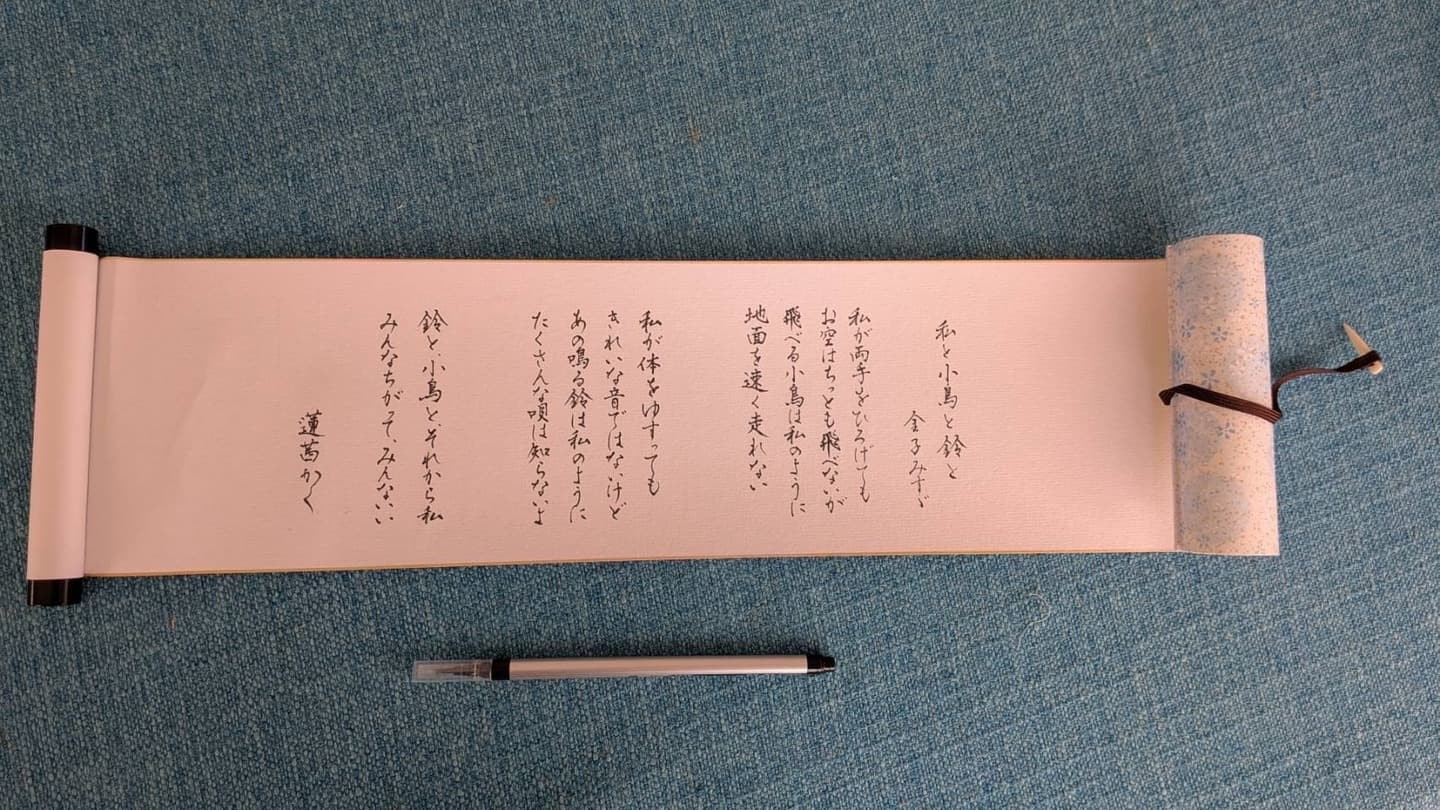 私と小鳥と鈴と
金子みすゞ
私が両手をひろげても
お空はちっとも飛べないが
飛べる小鳥は私のように
地面を速く走れない
私が体をゆすっても
きれいな音ではないけど
あの鳴る鈴は私のように
たくさんな唄は知らないよ
鈴と、小鳥と、それから私
みんなちがって、みんないい
蓮茜かく